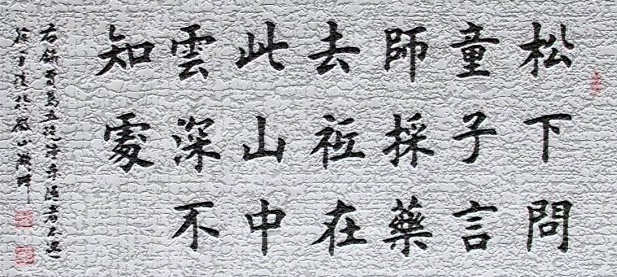 松下問
童子言
師採藥
去祗在
此山中
雲深不
知處
右錄賈島五絕尋隱者不遇